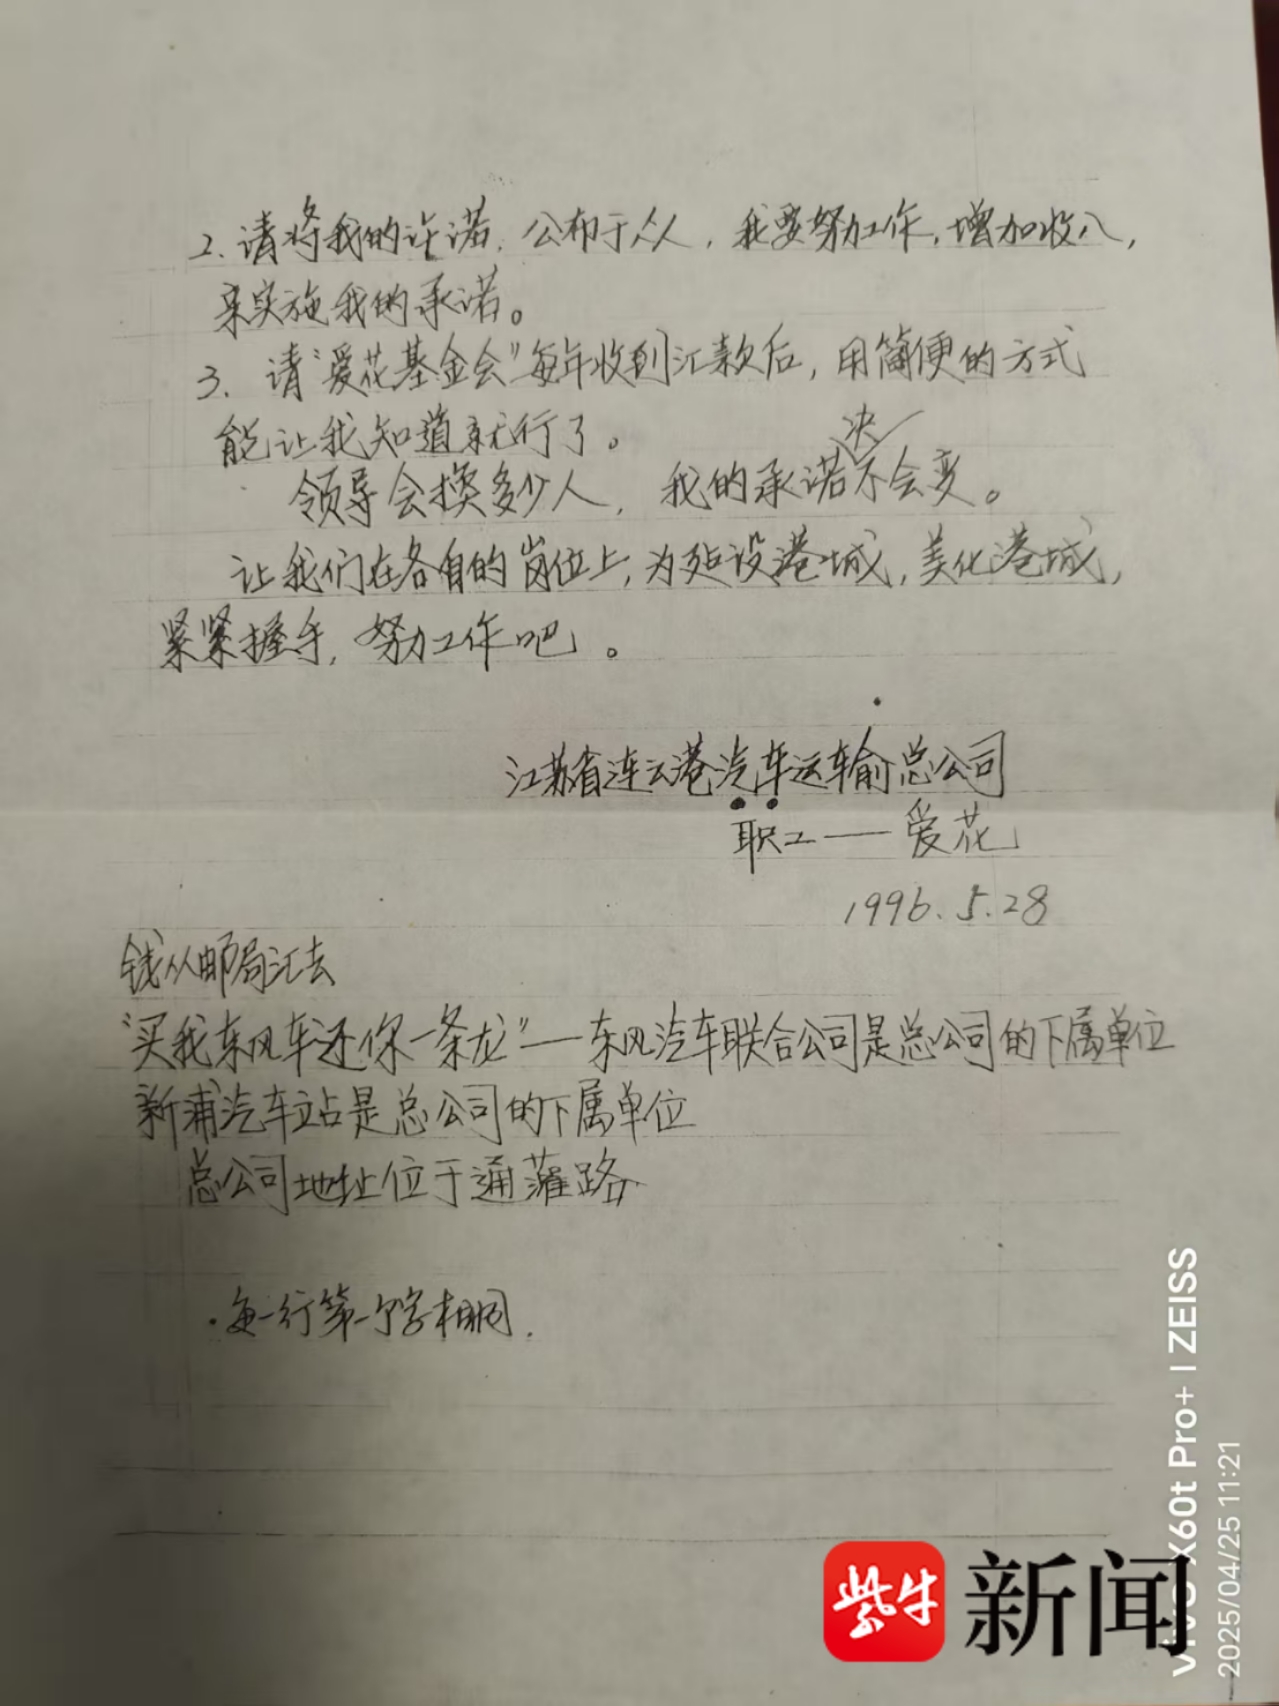 2. 请将我的许诺, 公布于众人, 我要努力工作, 增加收入,
来实施我的承诺。
3. 请“爱花基金会”每年收到汇款后, 用简便的方式
能让我知道就行了。
决
领导会换多少人, 我的承诺不会变。
让我们在各自的岗位上, 为建设港城, 美化港城,
紧紧握手, 努力工作吧。
江苏省连云港汽车运输总公司
职工——爱花
1996.5.28
钱从邮局汇去
“买我东风车还你一条龙”—东风汽车联合公司是总公司的下属单位
新浦汽车站是总公司的下属单位
总公司地址位于通灌路
·每一行第一个字相同.
紫牛新闻
vivo X60t Pro+ | ZEISS
2025/04/25 11:21